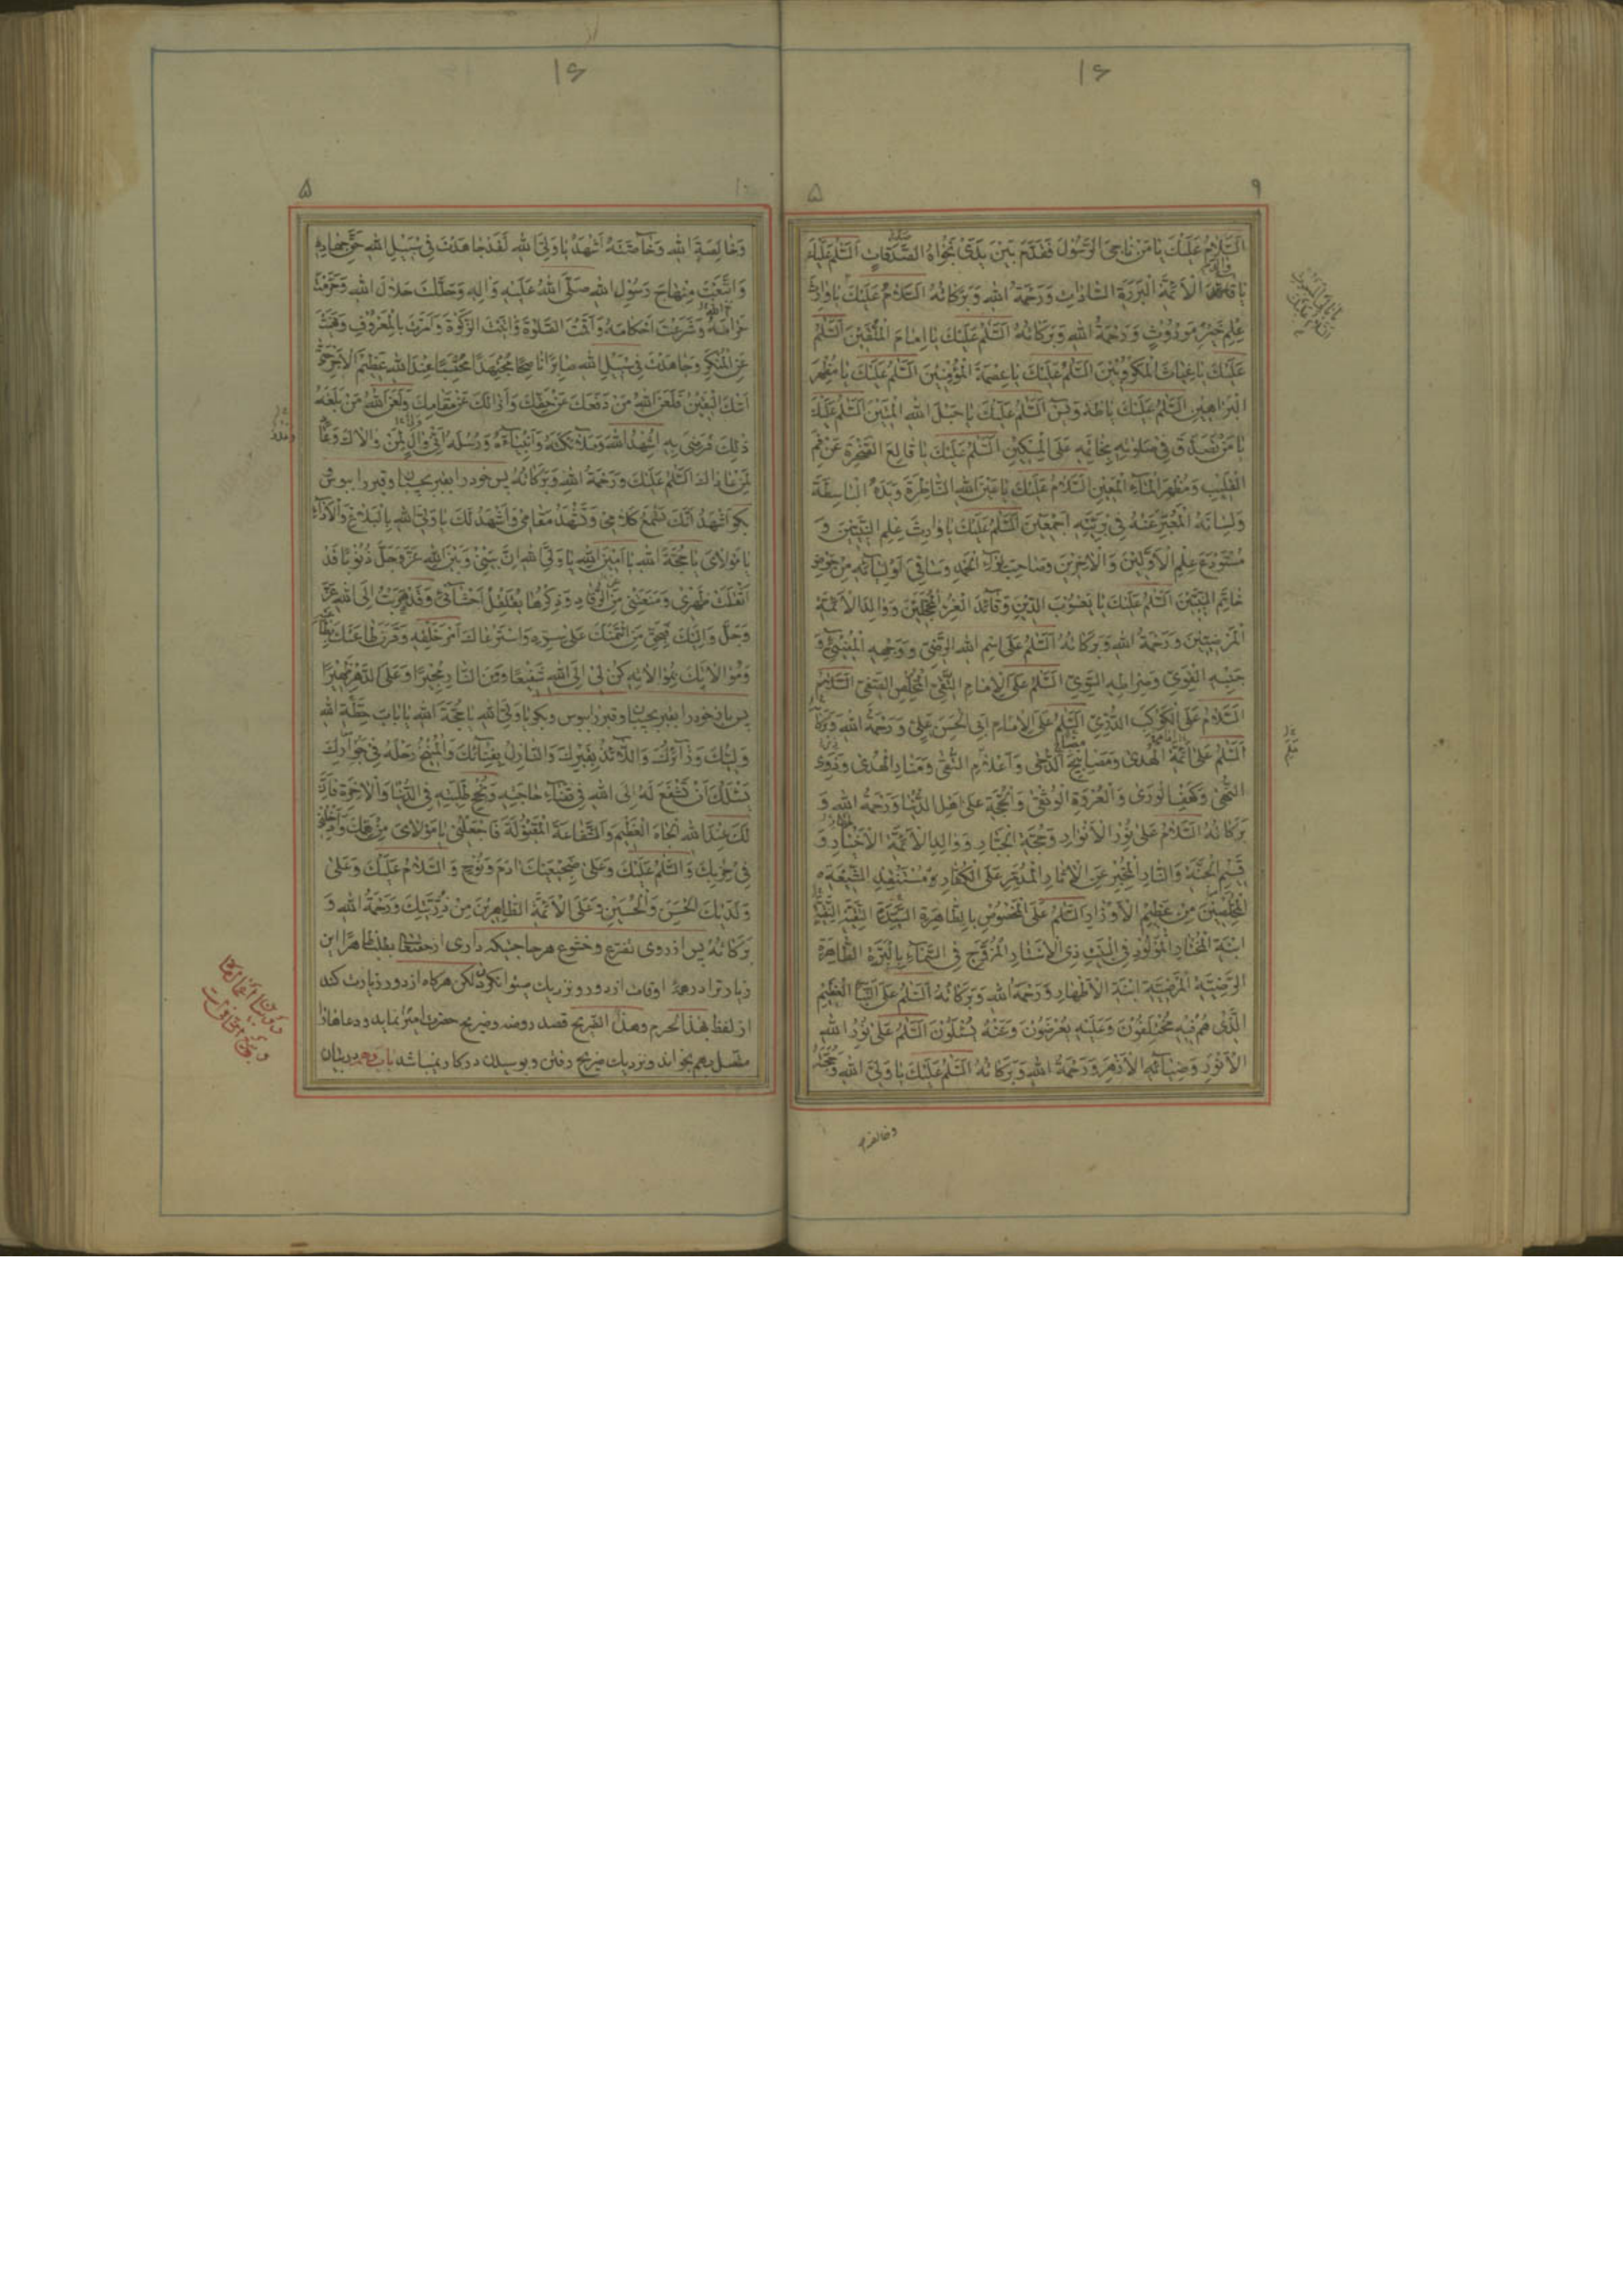 ۱۶
۹
۵
اَلسَّلامُ عَلَيْكَ يا مَنْ ناجَى الرَّسُولَ فَقَدَّمَ بَيْنَ يَدَىْ نَجْواهُ الصَّدَقاتِ اَلسَّلمُ عَلَيْكَ
يا والد الْاَئِمَّةِ الْبَرَرَةِ السّاداتِ وَرَحْمَةُ اللهِ وَبَرَكاتُهُ اَلسَّلامُ عَلَيْكَ يا وارِثَ
عِلْمِ خَيْرِ مَوْرُوثٍ وَرَحْمَةُ اللهِ وَبَرَكاتُهُ اَلسَّلمُ عَلَيْكَ يا اِمامَ الْمُتَّقينَ اَلسَّلمُ
عَلَيْكَ يا غِياثَ الْمَكْرُوبينَ اَلسَّلمُ عَلَيْكَ يا عِصْمَةَ الْمُؤْمِنينَ اَلسَّلمُ عَلَيْكَ يا مُظْهِرَ
الْبَراهينِ اَلسَّلمُ عَلَيْكَ يا طه وَيس اَلسَّلمُ عَلَيْكَ يا حَبْلَ اللهِ الْمَتينَ اَلسَّلمُ عَلَيْكَ
يا مَنْ تَصَدَّقَ فى صَلوتِهِ بِخاتَمِهِ عَلَى الْمِسْكينِ اَلسَّلمُ عَلَيْكَ يا قالِعَ الصَّخْرَةِ عَنْ فَمِ
الْقَليبِ وَمُظْهِرَ الْماءِ الْمَعينِ اَلسَّلامُ عَلَيْكَ يا عَيْنَ اللهِ النّاظِرَةَ وَيَدَهُ الْباسِطَةَ
وَلِسانَهُ الْمُعَبِّرَ عَنْهُ فى بَرِيَّتِهِ اَجْمَعينَ اَلسَّلمُ عَلَيْكَ يا وارِثَ عِلْمِ النَّبِيّينَ وَ
مُسْتَوْدَعَ عِلْمِ الْاَوَّلينَ وَالْاخِرينَ وَصاحِبَ لِواءِ الْحَمْدِ وَساقِىَ اَوْلِيائِهِ مِنْ حَوْضِ
خاتَمِ النَّبِيّينَ اَلسَّلمُ عَلَيْكَ يا يَعْسُوبَ الدّينِ وَقائِدَ الْغُرِّ الْمُحَجَّلينَ وَوالِدَ الْاَئِمَّةِ
الْمَرْضِيّينَ وَرَحْمَةُ اللهِ وَبَرَكاتُهُ اَلسَّلمُ عَلَى اسْمِ اللهِ الرَّضِىِّ وَوَجْهِهِ الْمُضيىءِ وَ
جَنْبِهِ الْقَوِىِّ وَصِراطِهِ السَّوِىِّ اَلسَّلمُ عَلَى الْاِمامِ التَّقِىِّ الْمُخْلِصِ الصَّفِىِّ
اَلسَّلامُ عَلَى الْكَوْكَبِ الدُّرِّىِّ اَلسَّلمُ عَلَى الْاِمامِ اَبِى الْحَسَنِ عَلِىٍّ وَرَحْمَةُ اللهِ وَبَرَكاتُهُ
اَلسَّلمُ عَلى اَئِمَّةِ الْهُدى وَمَصابيحِ الدُّجى وَاَعْلامِ التُّقى وَمَنارِ الْهُدى وَذَوِى
النُّهى وَكَهْفِ الْوَرى وَالْعُرْوَةِ الْوُثْقى وَالْحُجَّةِ عَلى اَهْلِ الدُّنْيا وَرَحْمَةُ اللهِ وَ
بَرَكاتُهُ اَلسَّلامُ عَلى نُورِ الْاَنْوارِ وَحُجَّةِ الْجَبّارِ وَوالِدِ الْاَئِمَّةِ الْاَخْيارِ وَ
قَسيمِ الْجَنَّةِ وَالنّارِ الْمُخْبِرِ عَنِ الْاثارِ الْمُدَمِّرِ عَلَى الْكُفّارِ وَمُسْتَنْقِذِ الشّيعَةِ
الْمُخْلِصينَ مِنْ عَظيمِ الْاَوْزارِ اَلسَّلمُ عَلَى الْمَخْصُوصِ بِالطّاهِرَةِ السَّيِّدَةِ التَّقِيَّةِ النَّقِيَّةِ
ابْنَةِ الْمُخْتارِ الْمَوْلُودِ فِى الْبَيْتِ ذِى الْاَسْتارِ الْمُزَوَّجِ فِى السَّماءِ بِالْبَرَّةِ الطّاهِرَةِ
الرَّضِيَّةِ الْمَرْضِيَّةِ ابْنَةِ الْاَطْهارِ وَرَحْمَةُ اللهِ وَبَرَكاتُهُ اَلسَّلمُ عَلَى النَّبَاِ الْعَظيمِ
الَّذى هُمْ فيهِ مُخْتَلِفُونَ وَعَلَيْهِ يُعْرَضُونَ وَعَنْهُ يُسْئَلُونَ اَلسَّلمُ عَلى نُورِ اللهِ
الْاَنْوَرِ وَضِيائِهِ الْاَزْهَرِ وَرَحْمَةُ اللهِ وَبَرَكاتُهُ اَلسَّلمُ عَلَيْكَ يا وَلِىَّ اللهِ وَحُجَّتَهُ
وخالصة
۱۶
۱۰
۵
وَخالِصَةَ اللهِ وَخاصَّتَهُ اَشْهَدُ يا وَلِىَّ اللهِ لَقَدْ جاهَدْتَ فى سَبيلِ اللهِ حَقَّ جِهادِهِ
وَاتَّبَعْتَ مِنْهاجَ رَسُولِ اللهِ صَلَّى اللهُ عَلَيْهِ وَالِهِ وَحَلَّلْتَ حَلالَ اللهِ وَحَرَّمْتَ
حَرامَهُ وَشَرَعْتَ اَحْكامَهُ وَاَقَمْتَ الصَّلوةَ وَاتَيْتَ الزَّكوةَ وَاَمَرْتَ بِالْمَعْرُوفِ وَنَهَيْتَ
عَنِ الْمُنْكَرِ وَجاهَدْتَ فى سَبيلِ اللهِ صابِرًا ناصِحًا مُجْتَهِدًا مُحْتَسِبًا عِنْدَ اللهِ عَظيمَ الْاَجْرِ حَتّى
اَتيكَ الْيَقينُ فَلَعَنَ اللهُ مَنْ دَفَعَكَ عَنْ حَقِّكَ وَاَزالَكَ عَنْ مَقامِكَ وَلَعَنَ اللهُ مَنْ بَلَغَهُ
ذلِكَ فَرَضِىَ بِهِ اُشْهِدُ اللهَ وَمَلائِكَتَهُ وَاَنْبِياءَهُ وَرُسُلَهُ اَنّى والٍ لِمَنْ والاكَ وَعادٍ
لِمَنْ عاداكَ اَلسَّلمُ عَلَيْكَ وَرَحْمَةُ اللهِ وَبَرَكاتُهُ پس خود را بقبر بچسبان و قبر را ببوس
بگو اَشْهَدُ اَنَّكَ تَسْمَعُ كَلامى وَتَشْهَدُ مَقامى وَاَشْهَدُ لَكَ يا وَلِىَّ اللهِ بِالْبَلاغِ وَالْاَداءِ
يا مَوْلاىَ يا حُجَّةَ اللهِ يا اَمينَ اللهِ يا وَلِىَّ اللهِ اِنَّ بَيْنى وَبَيْنَ اللهِ عَزَّ وَجَلَّ ذُنُوبًا قَدْ
اَثْقَلَتْ ظَهْرى وَمَنَعَتْنى مِنَ الرُّقادِ وَذِكْرُها يُقَلْقِلُ اَحْشائى وَقَدْ هَرَبْتُ اِلَى اللهِ عَزَّ
وَجَلَّ وَاِلَيْكَ فَبِحَقِّ مَنِ ائْتَمَنَكَ عَلى سِرِّهِ وَاسْتَرْعاكَ اَمْرَ خَلْقِهِ وَقَرَنَ طاعَتَكَ بِطاعَتِهِ
وَمُوالاتَكَ بِمُوالاتِهِ كُنْ لى اِلَى اللهِ شَفيعًا وَمِنَ النّارِ مُجيرًا وَعَلَى الدَّهْرِ ظَهيرًا
پس باز خود را بقبر بچسبان و قبر را ببوس و بگو يا وَلِىَّ اللهِ يا حُجَّةَ اللهِ يا بابَ حِطَّةِ اللهِ
وَلِيُّكَ وَزائِرُكَ وَاللّائِذُ بِقَبْرِكَ وَالنّازِلُ بِفِنائِكَ وَالْمُنيخُ رَحْلَهُ فى جِوارِكَ
يَسْئَلُكَ اَنْ تَشْفَعَ لَهُ اِلَى اللهِ فى قَضاءِ حاجَتِهِ وَنُجْحِ طَلِبَتِهِ فِى الدُّنْيا وَالْاخِرَةِ فَاِنَّ
لَكَ عِنْدَ اللهِ الْجاهَ الْعَظيمَ وَالشَّفاعَةَ الْمَقْبُولَةَ فَاجْعَلْنى يا مَوْلاىَ مِنْ هَمِّكَ وَاَدْخِلْنى
فى حِزْبِكَ وَالسَّلمُ عَلَيْكَ وَعَلى ضَجيعَيْكَ ادَمَ وَنُوحٍ وَالسَّلامُ عَلَيْكَ وَعَلى
وَلَدَيْكَ الْحَسَنِ وَالْحُسَيْنِ وَعَلَى الْاَئِمَّةِ الطّاهِرينَ مِنْ ذُرِّيَّتِكَ وَرَحْمَةُ اللهِ وَ
بَرَكاتُهُ پس از روى تضرع و خشوع هر حاجتيكه دارى از حقتعالى بطلب ظاهرا اين
زيارترا در همه اوقات از دور و نزديك ميتوانكرد لكن هرگاه از دور زيارت كند
از لفظ هذا الحرم وهذا الضريح قصد روضه و ضريح حضرت امير نمايد و دعاهارا
متصل بهم بخواند و نزديك ضريح رفتن و بوسيدن دركار نميباشد باب دهم در بيان